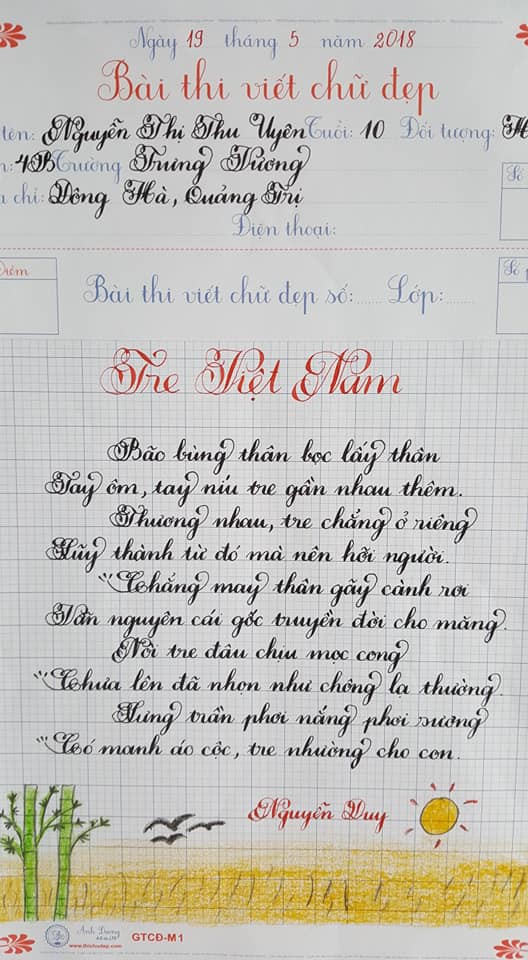 Ngày 19 tháng 5 năm 2018
Bài thi viết chữ đẹp
tên: Nguyễn Thị Thu Uyên Tuổi: 10 Đối tượng: H
n: 4B Trường Trưng Vương
a chỉ: Đông Hà, Quảng Trị
Điện thoại:
Số
Điểm
Bài thi viết chữ đẹp số:...... Lớp:......
Số p
Tre Việt Nam
Bão bùng thân bọc lấy thân
Tay ôm, tay níu tre gần nhau thêm.
Thương nhau, tre chẳng ở riêng
Lũy thành từ đó mà nên hỡi người.
Chẳng may thân gãy cành rơi
Vẫn nguyên cái gốc truyền đời cho măng.
Nòi tre đâu chịu mọc cong
Chưa lên đã nhọn như chông lạ thường.
Lưng trần phơi nắng phơi sương
Có manh áo cộc, tre nhường cho con.
Nguyễn Duy
Ánh Dương
www.thichudep.com
GTCĐ-M1